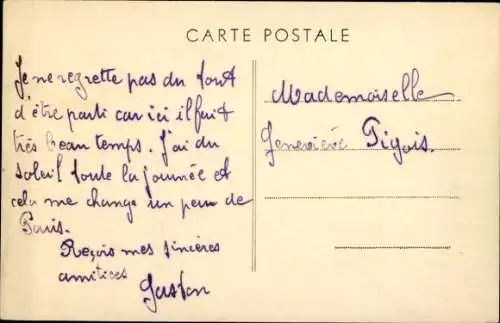 CARTE POSTALE
Je ne regrette pas du tout
d'être parti car ici il fait
très beau temps. J'ai du
soleil toute la journée et
cela me change un peu de
Paris.
Reçois mes sincères
amitiées
Gaston
Mademoiselle
Geneviève Pigois.